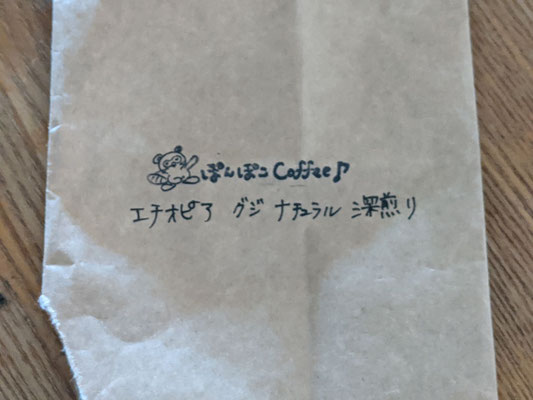 ぽんぽこ Coffee♪
エチオピア グジ ナチュラル 深煎り